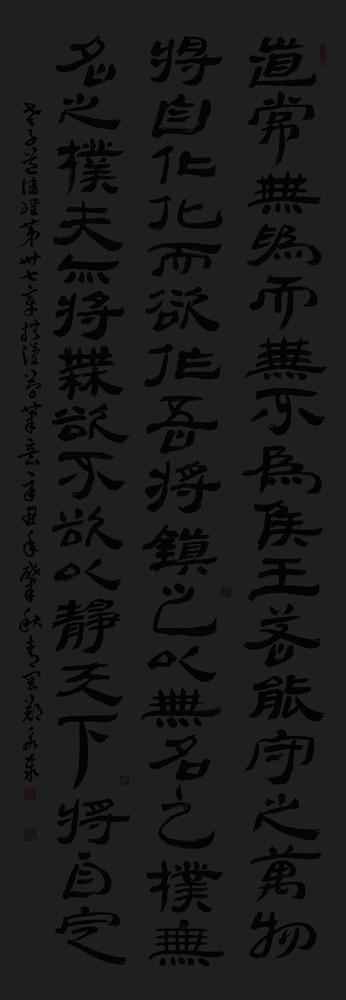 道常無為而無不為侯王若能守之萬物
將自化化而欲作吾將鎮之以無名之樸無
名之樸夫亦將無欲不欲以靜天下將自定
老子道德經第卅七章漢簡筆意辛丑年肇秋青鄭永